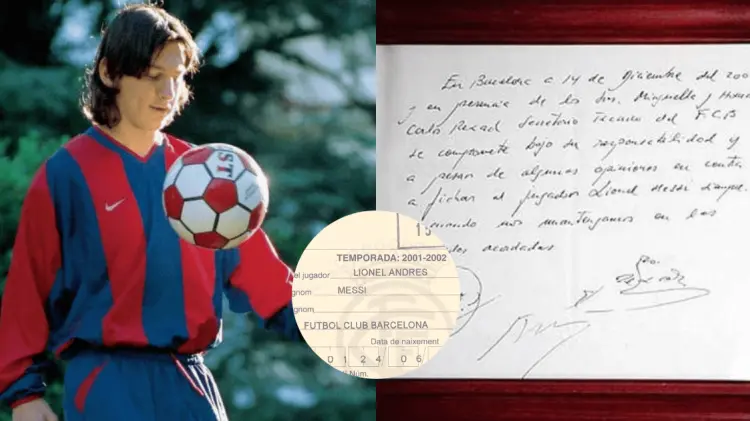 En Barcelona a 14 de Diciembre del 200
y en presencia de los Srs. Minguella y Hora
Carles Rexach Secretario Tecnico del F.C.B
se compromete bajo su responsabilidad y
a pesar de algunas opiniones en contra
a fichar al jugador Lionel Messi siempre
cuando nos mantengamos en las
acordadas
ST
TEMPORADA: 2001-2002
el jugador LIONEL ANDRES
gnom MESSI
gnom
FUTBOL CLUB BARCELONA
Data de naixement
0 1 2 4 0 6
Núm.